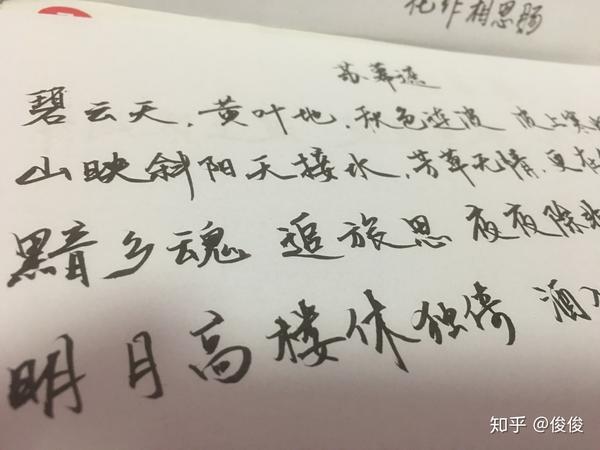 化作相思肠
苏幕遮
碧云天,黄叶地,秋色连波 波上寒
山映斜阳天接水,芳草无情,更在
黯乡魂 追旅思 夜夜除非
明月高楼休独倚 酒
知乎 @俊俊